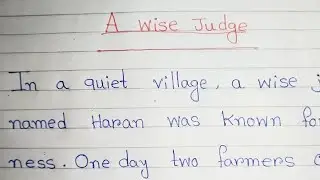 A wise Judge
In a quiet village, a wise
named Haran was known
ness. One day two farmers